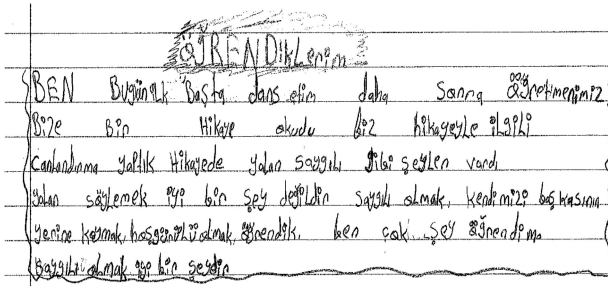 ÖĞRENDİKlerim
BEN Bugün ilk Başta dans etim daha Sonra öğretmenimiz
Bize Bir Hikaye okudu biz hikayeyle ilgili
Canlandırma yaptık Hikayede yalan saygılı gibi şeyler vardı
yalan söylemek iyi bir şey değildir saygılı olmak, kendimizi başkasının
yerine koymak, hoşgörülü olmak, öğrendik. ben çok şey öğrendim.
saygılı olmak iyi bir şeydir